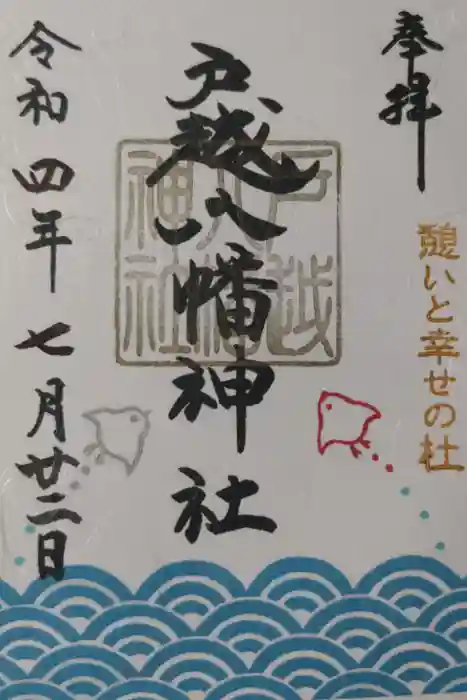 奉拝
憩いと幸せの杜
戸越八幡神社
戸越八幡神社
令和四年七月廿二日